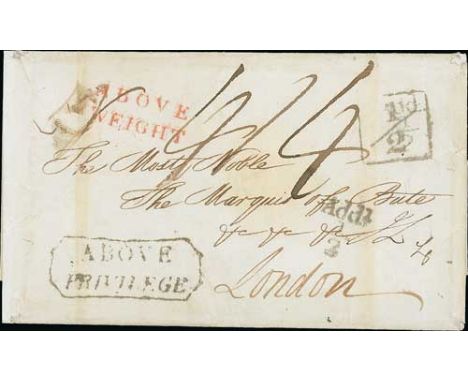 ABOVE
WEIGHT
4/4
1/2
The Most Noble
The Marquis of Bute
&c &c &c
Addl
2
ABOVE
PRIVILEGE
London